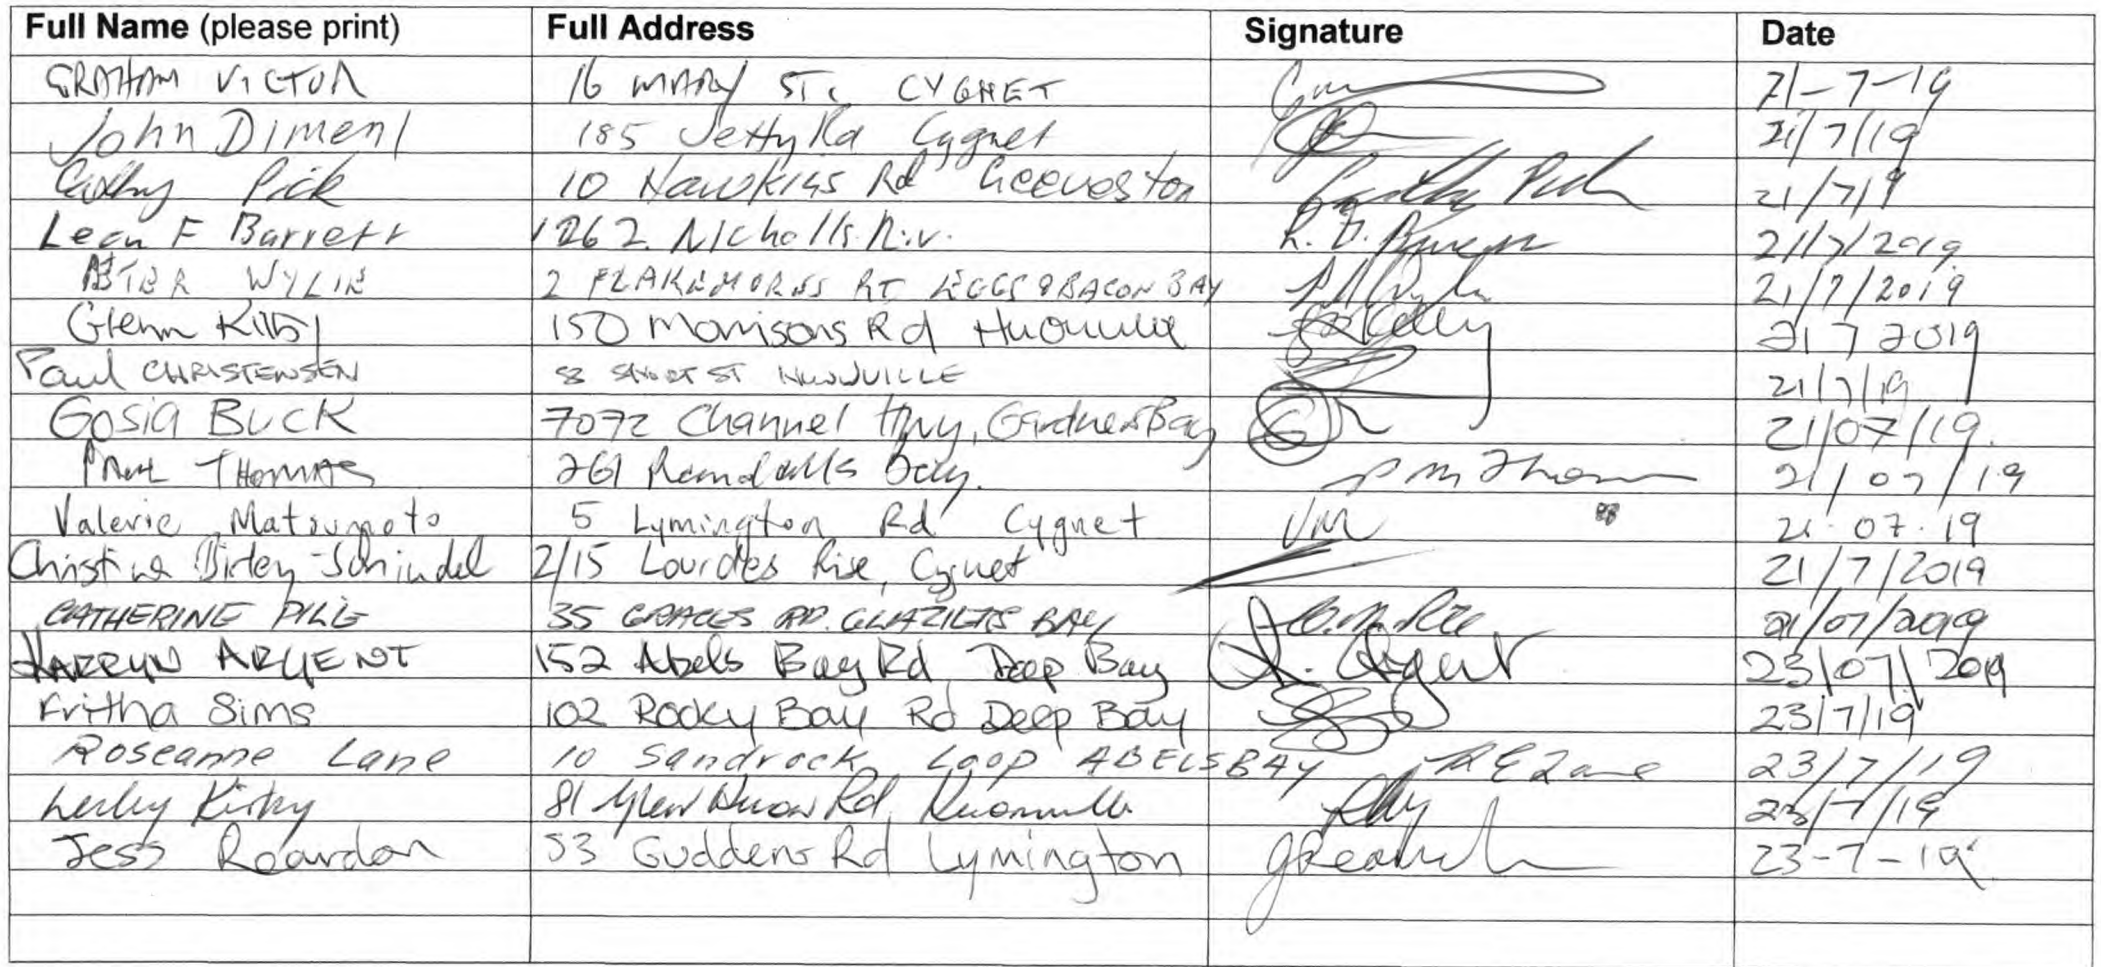 Full Name (please print) Full Address Signature Date
GRAHAM VICTOR 16 MARY ST. CYGNET 21-7-19
John Diment 185 Jetty Rd Cygnet 21/7/19
Cathy Pick 10 Hawkins Rd Geeveston Cathy Pick 21/7/19
Leon F Barrett 1262 Nicholls Riv. 21/7/2019
PETER WYLIE 2 FLAKEMORES RT EGGS & BACON BAY 21/7/2019
Glenn Kilby 150 Morrisons Rd Huonville 21 7 2019
Paul CHRISTENSEN SHORT ST HUONVILLE 21/7/19
Gosia BUCK 7072 Channel Hwy, Gardners Bay 21/07/19.
Paul THOMAS 261 Randalls Bay. P M Thomas 21/07/19
Valerie Matsumoto 5 Lymington Rd Cygnet VM 21.07.19
Christine Dirley-Schindel 2/15 Lourdes Rise, Cygnet 21/7/2019
CATHERINE PILE 35 GRACES RD. GLAZIERS BAY 21/07/2019
KARRYN ARGENT 152 Abels Bay Rd Deep Bay K. Argent 23/07/2019
Fritha Sims 102 Rocky Bay Rd Deep Bay 23/7/19
Roseanne Lane 10 Sandrock Loop ABELS BAY R E Lane 23/7/19
Lesley Kirby 81 Glen Huon Rd, Huonville 23/7/19
Jess Reardon 53 Guddens Rd Lymington JReardon 23-7-19